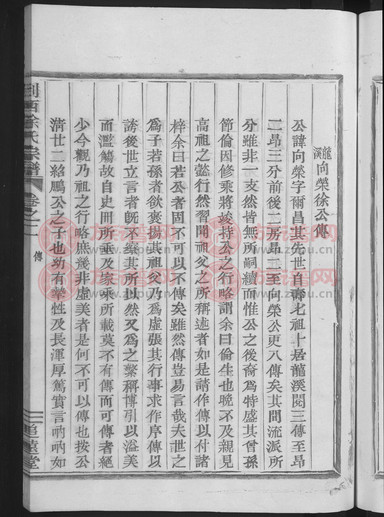 龍溪向榮徐公傳
公諱向榮字爾昌其先世自壽七老祖卜居龍溪閱三傳至昻
二昻三分前後二房昻二至向榮公更八傳矣其間流派所
分雖非一支然皆無所嗣續而惟公之後裔爲特盛其曾孫
節倫因修乘將竣持公之行略謂余曰倫生也晚不及親見
高祖之懿行然習聞祖父之所稱述者如是請作傳以付諸
梓余曰若公者固不可以不傳矣雖然傳豈易言哉夫世之
爲子若孫者欲褒揚其祖父乃爲虛張其行事求作序傳以
誘後世立言者旣不察其所以然又爲之繁稱博引以溢美
而濫觴故自史冊所載及家乘所載莫不有傳而可傳者絕
少今觀乃祖之行略庶幾非虛美者是何不可以傳也按公
淸廿二紹鵬公之子也幼有榮性及長渾厚篤實言吶吶如
剡西徐氏宗譜
卷之二
傳
追遠堂